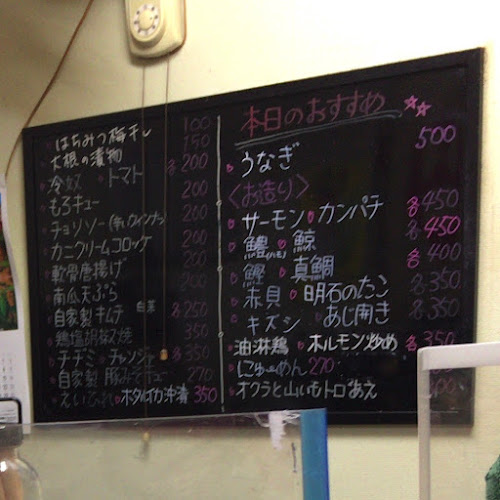 はちみつ梅干し 100
大根の漬物 150
冷奴 トマト 各200
もろキュー 200
チョリソー(辛いウインナー) 200
カニクリームコロッケ 200
軟骨唐揚げ 200
南瓜天ぷら
自家製キムチ 白菜 各250
鶏塩胡椒焼 350
チヂミ チャンジャ 各350
自家製 270
えいひれ ホタルイカ沖漬 350
本日のおすすめ
うなぎ 500
〈お造り〉
サーモン カンパチ 各450
鱧(ハモ) 鯨 各450
鰹 真鯛 各400
赤貝 明石のたこ 各350
キズシ あじ開き 各350
油淋鶏 ホルモン炒め 各350
にゅーめん 270
オクラと山いもトロあえ